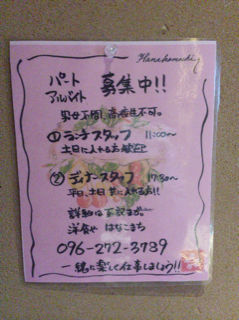 Hanakomachi
パート
アルバイト 募集中!!
男女不問、高校生不可。
①ランチスタッフ 11:00〜
土日に入れる方歓迎
②ディナースタッフ 17:30〜
平日、土日 共に入れる方!!
詳細は下記まで。
洋食や はなこまち
096-272-3789
一緒に楽しく仕事しましょう!!